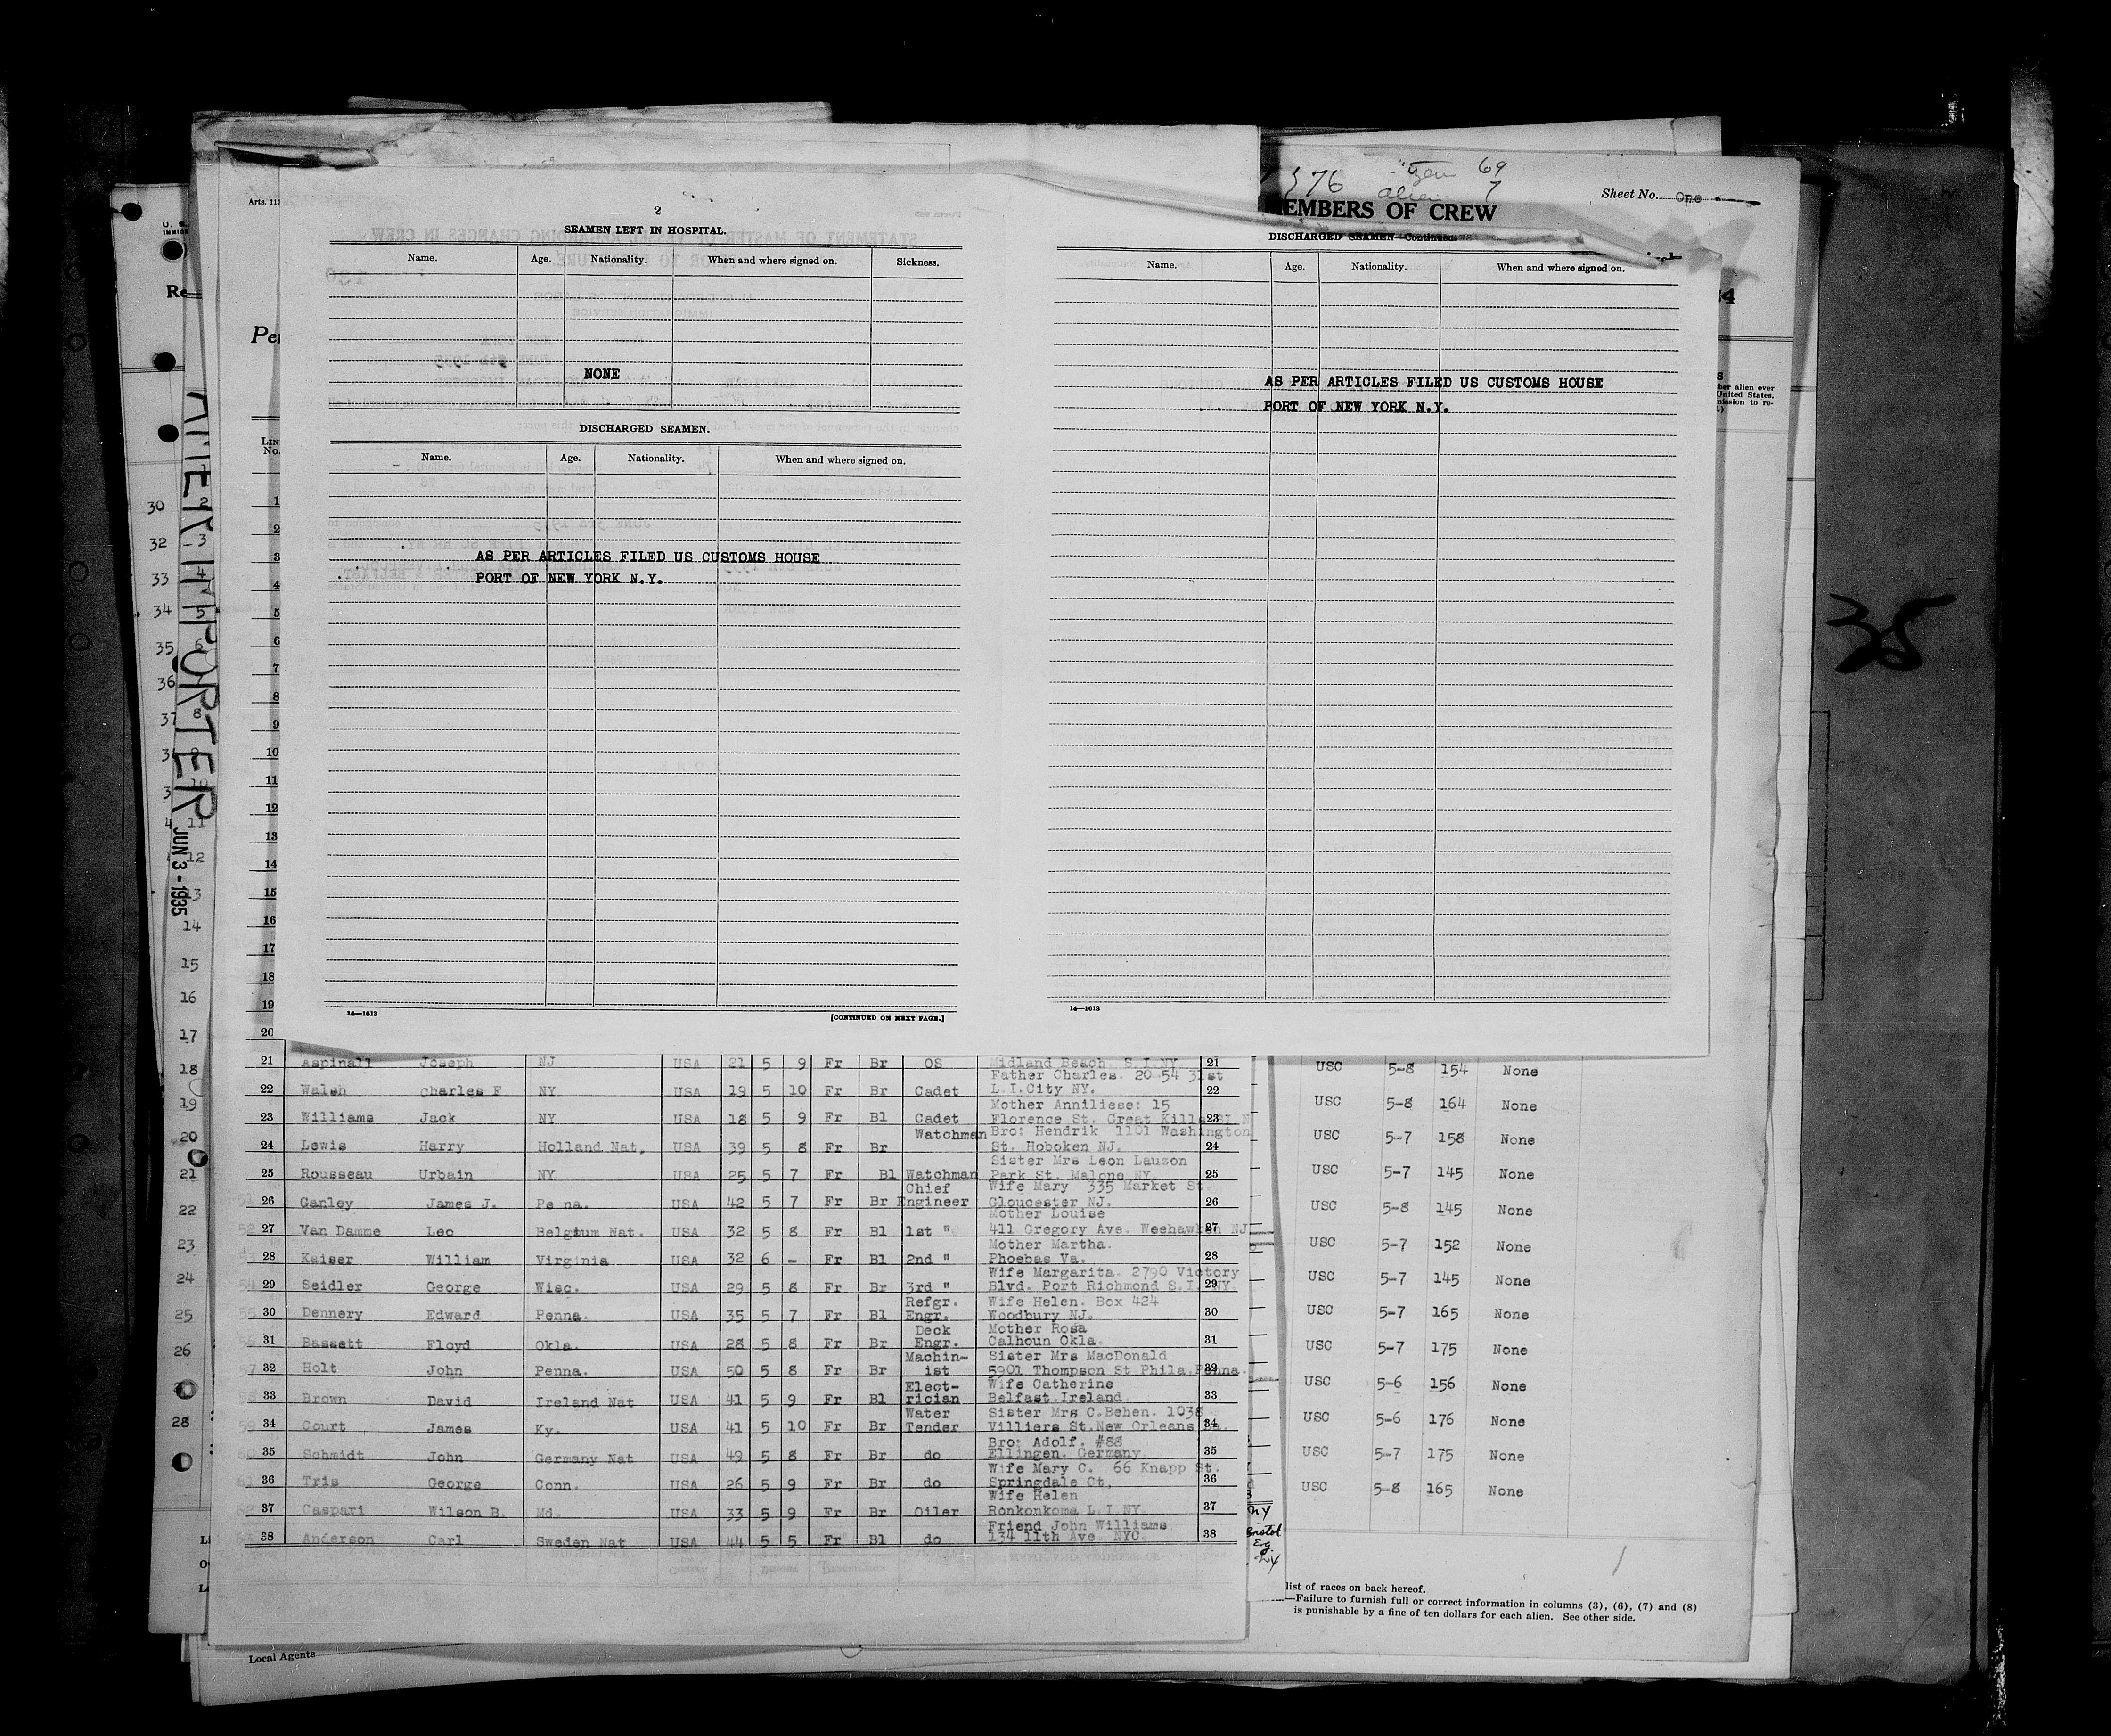 376 69
alien 7
MEMBERS OF CREW
Sheet No. One
Arts. 113
2
SEAMEN LEFT IN HOSPITAL.
Name. Age. Nationality. When and where signed on. Sickness.
NONE
DISCHARGED SEAMEN.
Name. Age. Nationality. When and where signed on.
AS PER ARTICLES FILED US CUSTOMS HOUSE
PORT OF NEW YORK N.Y.
14—1613
[CONTINUED ON NEXT PAGE.]
DISCHARGED SEAMEN—Continued.
Name. Age. Nationality. When and where signed on.
AS PER ARTICLES FILED US CUSTOMS HOUSE
PORT OF NEW YORK N.Y.
14—1613
AMER IMPORTER
JUN 3 - 1935
35
21 Aspinall Joseph NJ USA 21 5 9 Fr Br OS Midland Beach. S.I.NY 21
22 Walsh Charles F NY USA 19 5 10 Fr Br Cadet Father Charles. 20-54 31st
L.I.City NY. 22
23 Williams Jack NY USA 18 5 9 Fr Bl Cadet Mother Anniliese: 15
Florence St. Great Kills SI N 23
24 Lewis Harry Holland Nat. USA 39 5 8 Fr Br Watchman Bro: Hendrik 1101 Washington
St. Hoboken NJ. 24
25 Rousseau Urbain NY USA 25 5 7 Fr Bl Watchman Sister Mrs Leon Lauzon
Park St. Malone NY. 25
26 Ganley James J. Pe nna. USA 42 5 7 Fr Br Chief Engineer Wife Mary 335 Market St.
Gloucester NJ. 26
27 Van Damme Leo Belgium Nat. USA 32 5 8 Fr Bl 1st " Mother Louise
411 Gregory Ave. Weehawken NJ 27
28 Kaiser William Virginia USA 32 6 - Fr Bl 2nd " Mother Martha.
Phoebas Va. 28
29 Seidler George Wisc. USA 29 5 8 Fr Br 3rd " Wife Margarita. 2790 Victory
Blvd. Port Richmond S.I. NY. 29
30 Dennery Edward Penna. USA 35 5 7 Fr Bl Refgr. Engr. Wife Helen. Box 424
Woodbury NJ. 30
31 Bassett Floyd Okla. USA 28 5 8 Fr Br Deck Engr. Mother Rosa
Calhoun Okla. 31
32 Holt John Penna. USA 50 5 8 Fr Br Machin-ist Sister Mrs MacDonald
5901 Thompson St Phila,Penna. 32
33 Brown David Ireland Nat USA 41 5 9 Fr Bl Elect-rician Wife Catherine
Belfast.Ireland. 33
34 Court James Ky. USA 41 5 10 Fr Br Water Tender Sister Mrs C.Behen. 1038
Villiers St.New Orleans La. 34
35 Schmidt John Germany Nat USA 49 5 8 Fr Br do Bro: Adolf. #88
Ellingen. Germany. 35
36 Tris George Conn. USA 26 5 9 Fr Br do Wife Mary C. 66 Knapp St.
Springdale Ct, 36
37 Caspari Wilson B. Md. USA 33 5 9 Fr Br Oiler Wife Helen
Ronkonkoma L.I.NY. 37
38 Anderson Carl Sweden Nat USA 44 5 5 Fr Bl do Friend John Williams
134 11th Ave NYC. 38
USC 5-8 154 None
USC 5-8 164 None
USC 5-7 158 None
USC 5-7 145 None
USC 5-8 145 None
USC 5-7 152 None
USC 5-7 145 None
USC 5-7 165 None
USC 5-7 175 None
USC 5-6 156 None
USC 5-6 176 None
USC 5-7 175 None
USC 5-8 165 None
list of races on back hereof.
—Failure to furnish full or correct information in columns (3), (6), (7) and (8)
is punishable by a fine of ten dollars for each alien. See other side.
Local Agents